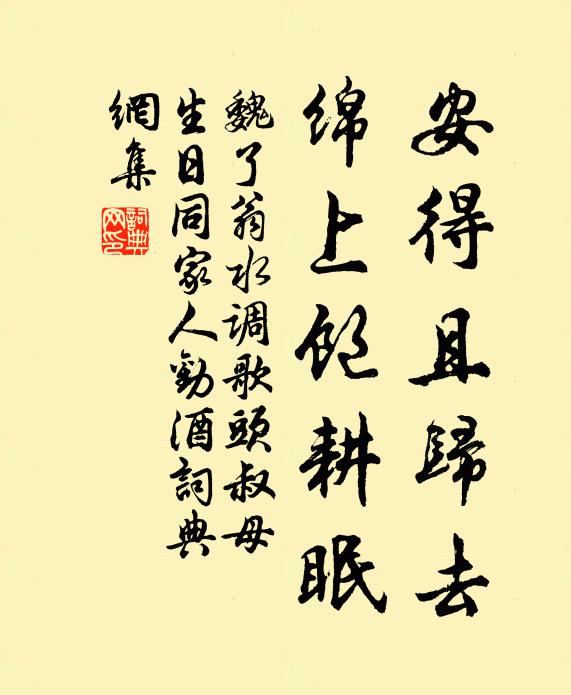 安得且歸去
綿上飽耕眠
魏了翁水调歌頭叔母
生日同家人勸酒詞典
網集
詞典
网印